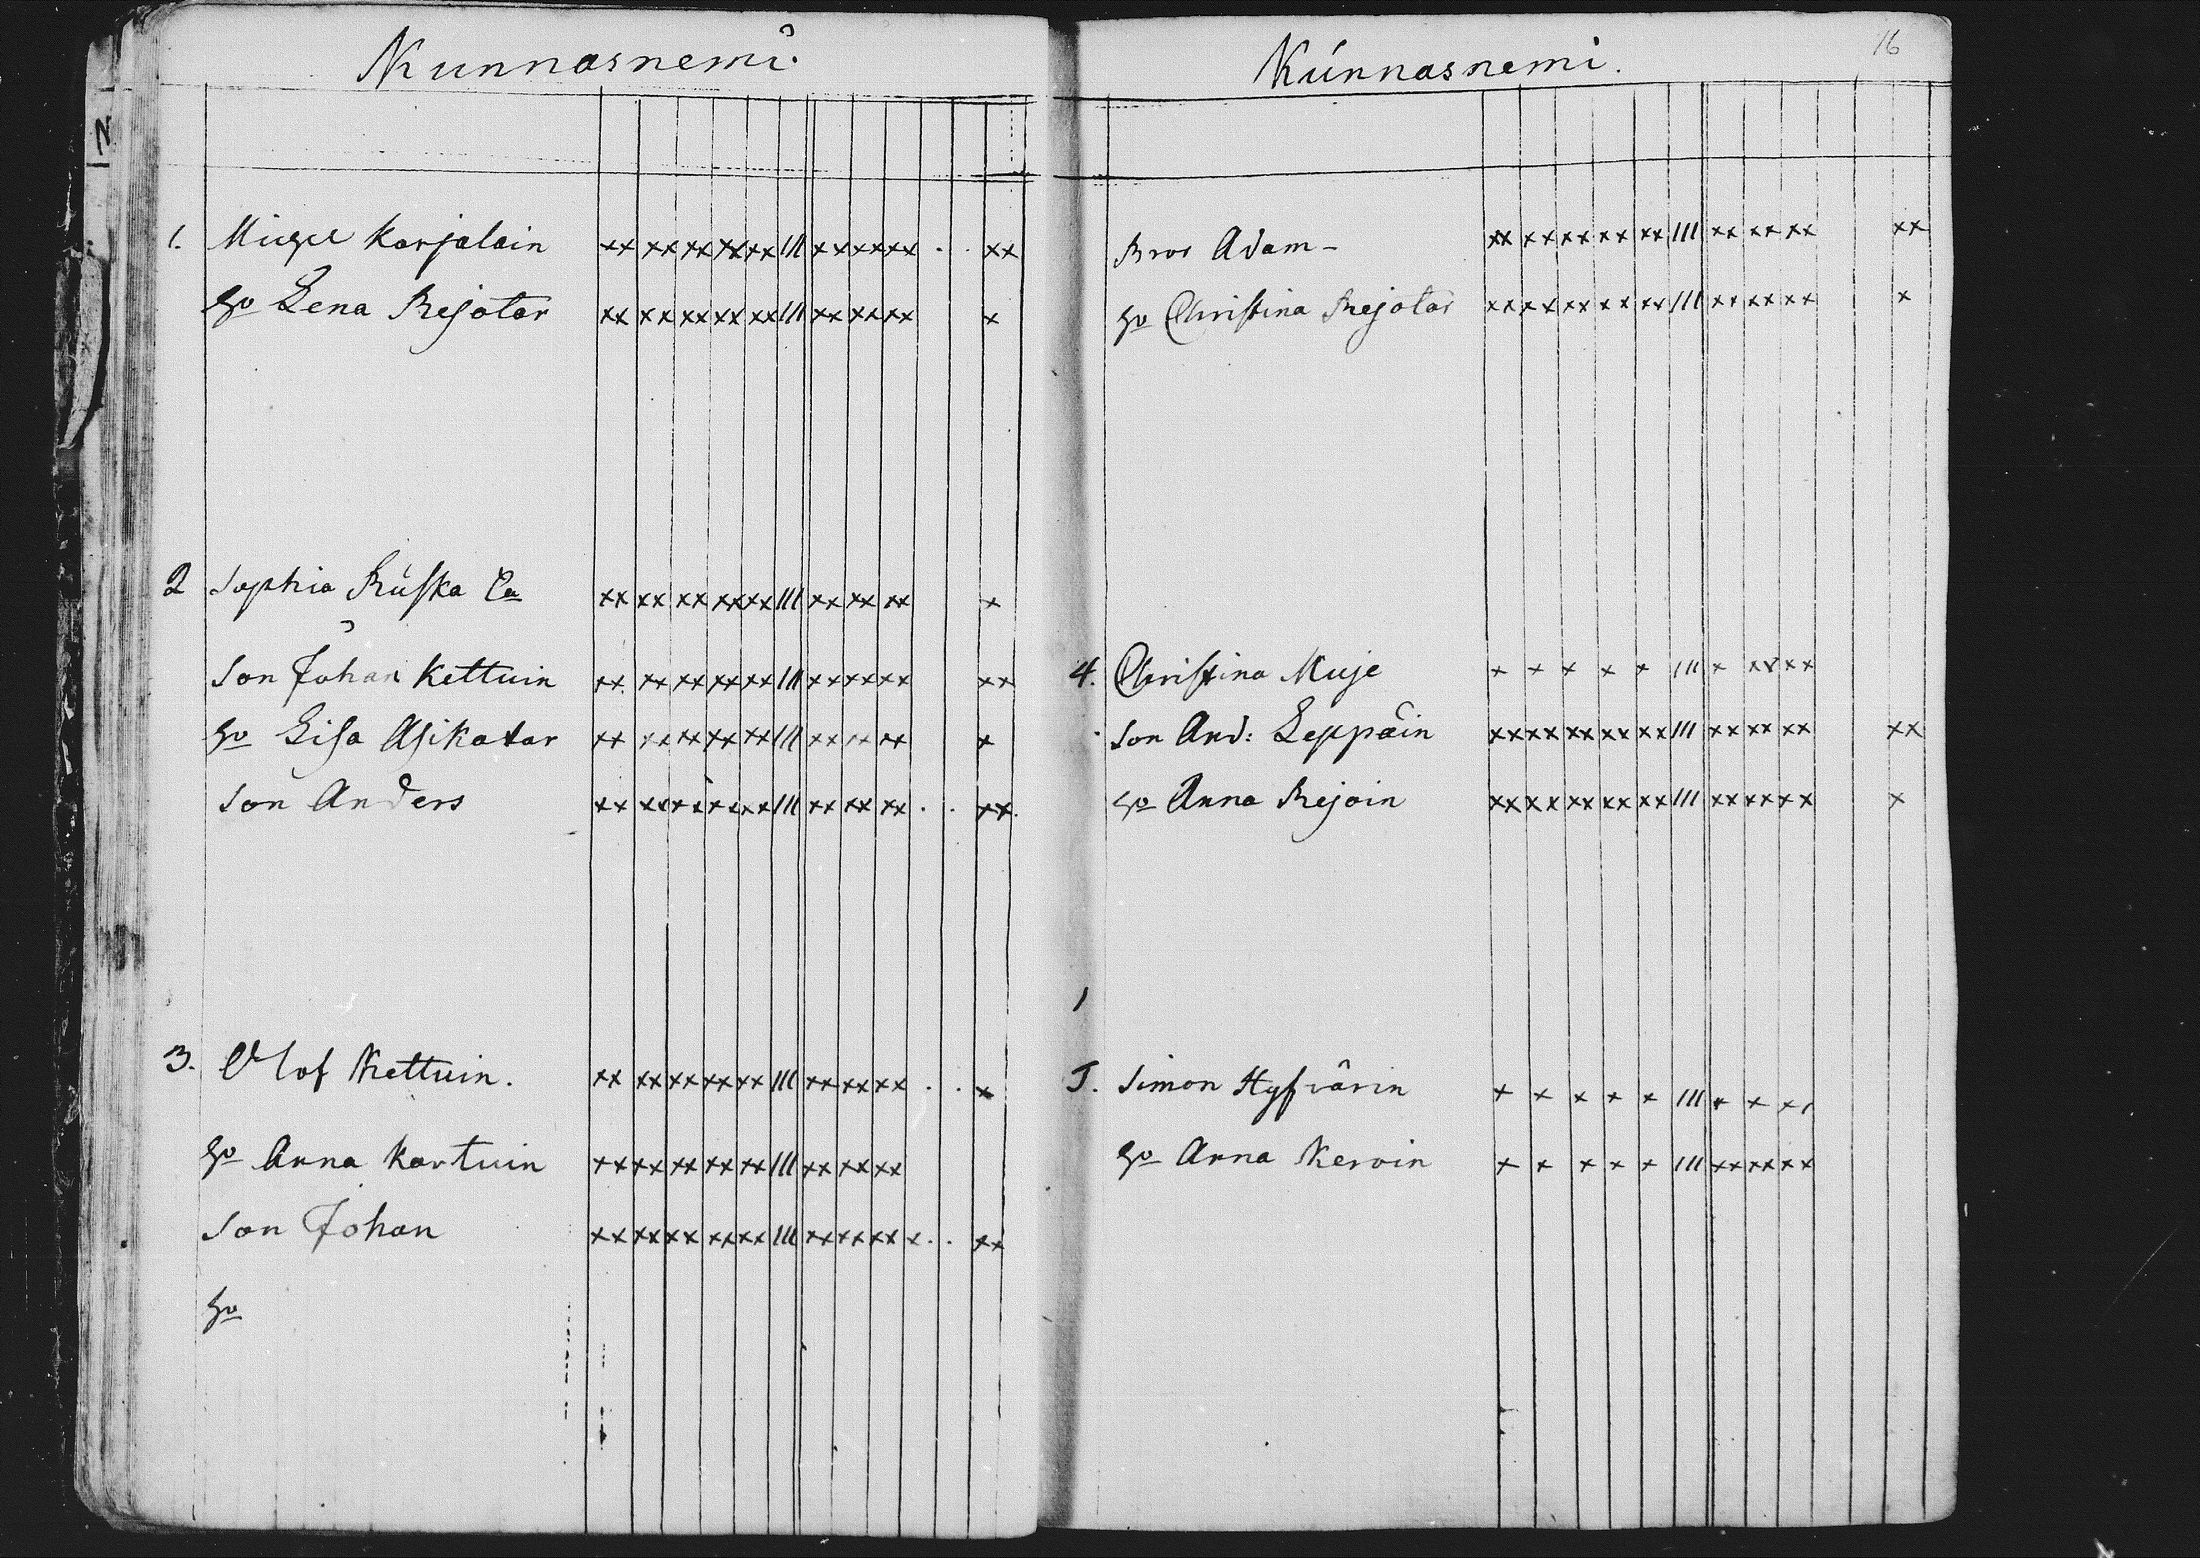 Kunnasnemi.
1. Michel Karjalain xx xx xx xx xx III xx xx xx . . xx
Hu Lena Rejotar xx xx xx xx xx III xx xx xx x
2 Sophia Ruska Ea xx xx xx xx xx III xx xx xx x
Son Johan Kettuin xx xx xx xx xx III xx xx xx xx
Hu Lisa Asikatar xx xx xx xx xx III xx xx xx x
Son Anders xx xx xx xx xx III xx xx xx . . xx.
3. Olof Kettuin. xx xx xx xx xx III xx xx xx . . x
Hu Anna Kartuin xx xx xx xx xx III xx xx xx
Son Johan xx xx xx xx xx III xx xx xx x . . xx
Hu
Kunnasnemi.
16
Bror Adam - xx xx xx xx xx III xx xx xx xx
Hu Christina Rejotar xx xx xx xx xx III xx xx xx x
4. Christina Muje x x x x x III x xx xx
Son And: Leppäin xx xx xx xx xx III xx xx xx xx
Hu Anna Rejoin xx xx xx xx xx III xx xx xx x
5. Simon Hyfvärin x x x x x III x x x
Hu Anna Kervin x x x x x III xx xx xx